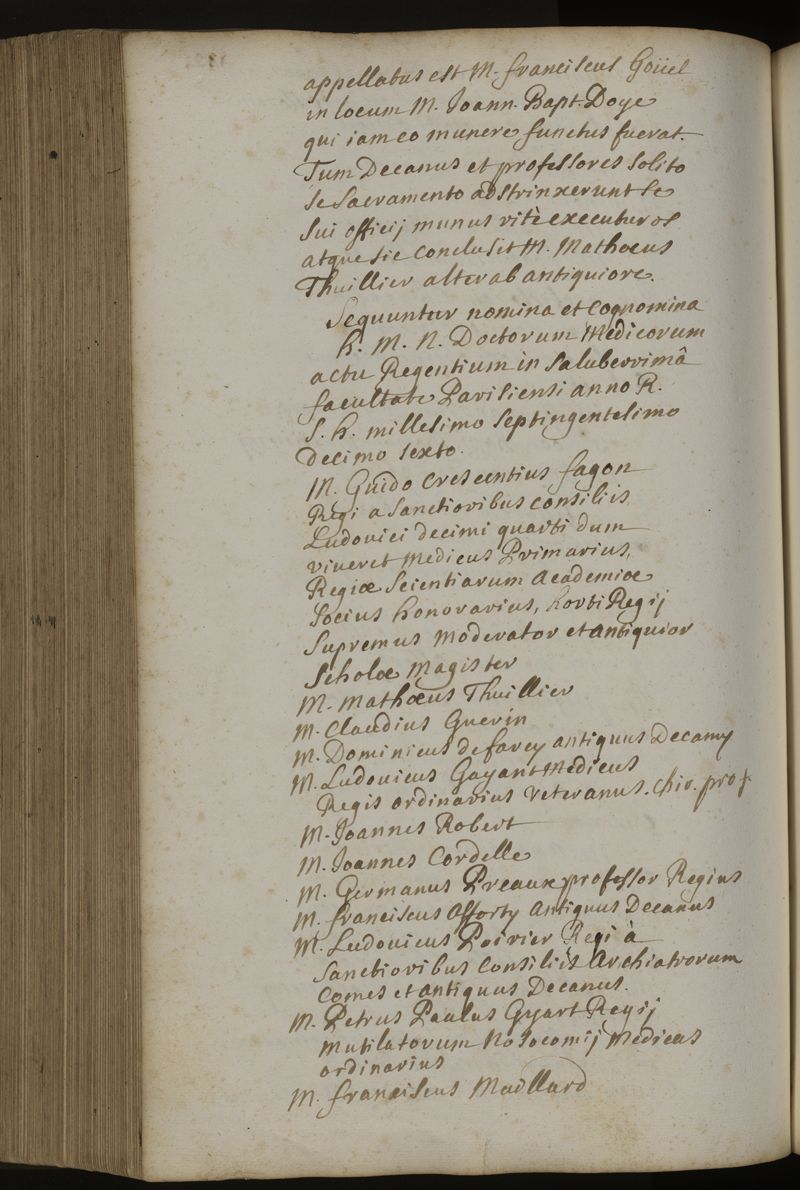 appellatus est M. franciscus Goüel
in locum M. Joann. Bapt. Doye
qui iam eo munere functus fuerat.
Tum Decanus et professores solito
se sacramento adstrinxerunt se
sui officij munus ritè executuros
atque sic conclusit M. Mathoeus
Thuillier alter ab antiquiore.
Sequuntur nomina et cognomina
h. M. N. Doctorum Medicorum
actu Regentium in saluberrimâ
facultate Parisiensi anno R.
S. h. millesimo septingentesimo
decimo sexto.
M. Guido Crescentius fagon
Regi a Sanctioribus consiliis
Ludovici decimi quarti dum
viveret Medicus Primarius,
Regiœ Scientiarum Academiœ
Socius honorarius, horti Regij
Supremus Moderator et antiquior
Scholœ Magister
M. Mathœus Thuillier
M. Claudius Guerin
M. Dominicus de farcy antiquus Decanus
M. Ludovicus Gayant Medicus
Regis ordinarius Veteranus. Chir. prof
M. Joannes Robert
M. Joannes Cordelle
M. Germanus Preaux professor Regius
M. franciscus Afforty Antiquus Decanus
M. Ludovicus Poirier Regi à
Sanctioribus Consiliis Archiatrorum
Comes et antiquus Decanus.
M. Petrus Paulus Gyart Regij
Mutilatorum Nosocomij Medicus
ordinarius
M. franciscus Maillard